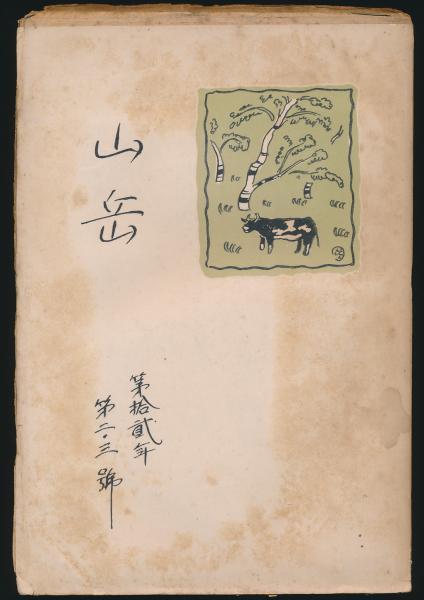 山岳
第拾貳年
第二・三號